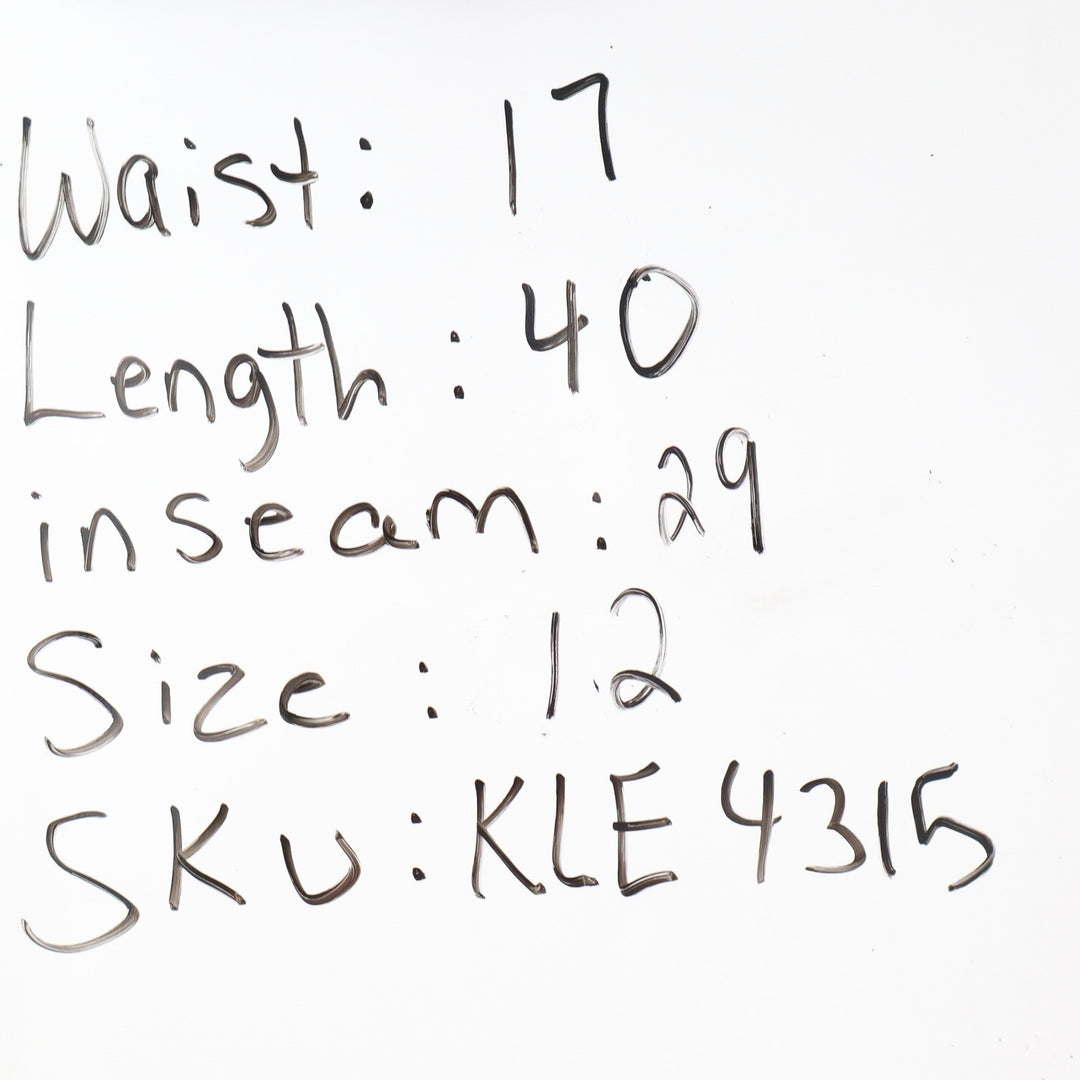 Waist: 17
Length: 40
inseam: 29
Size: 12
SKU: KLE4315